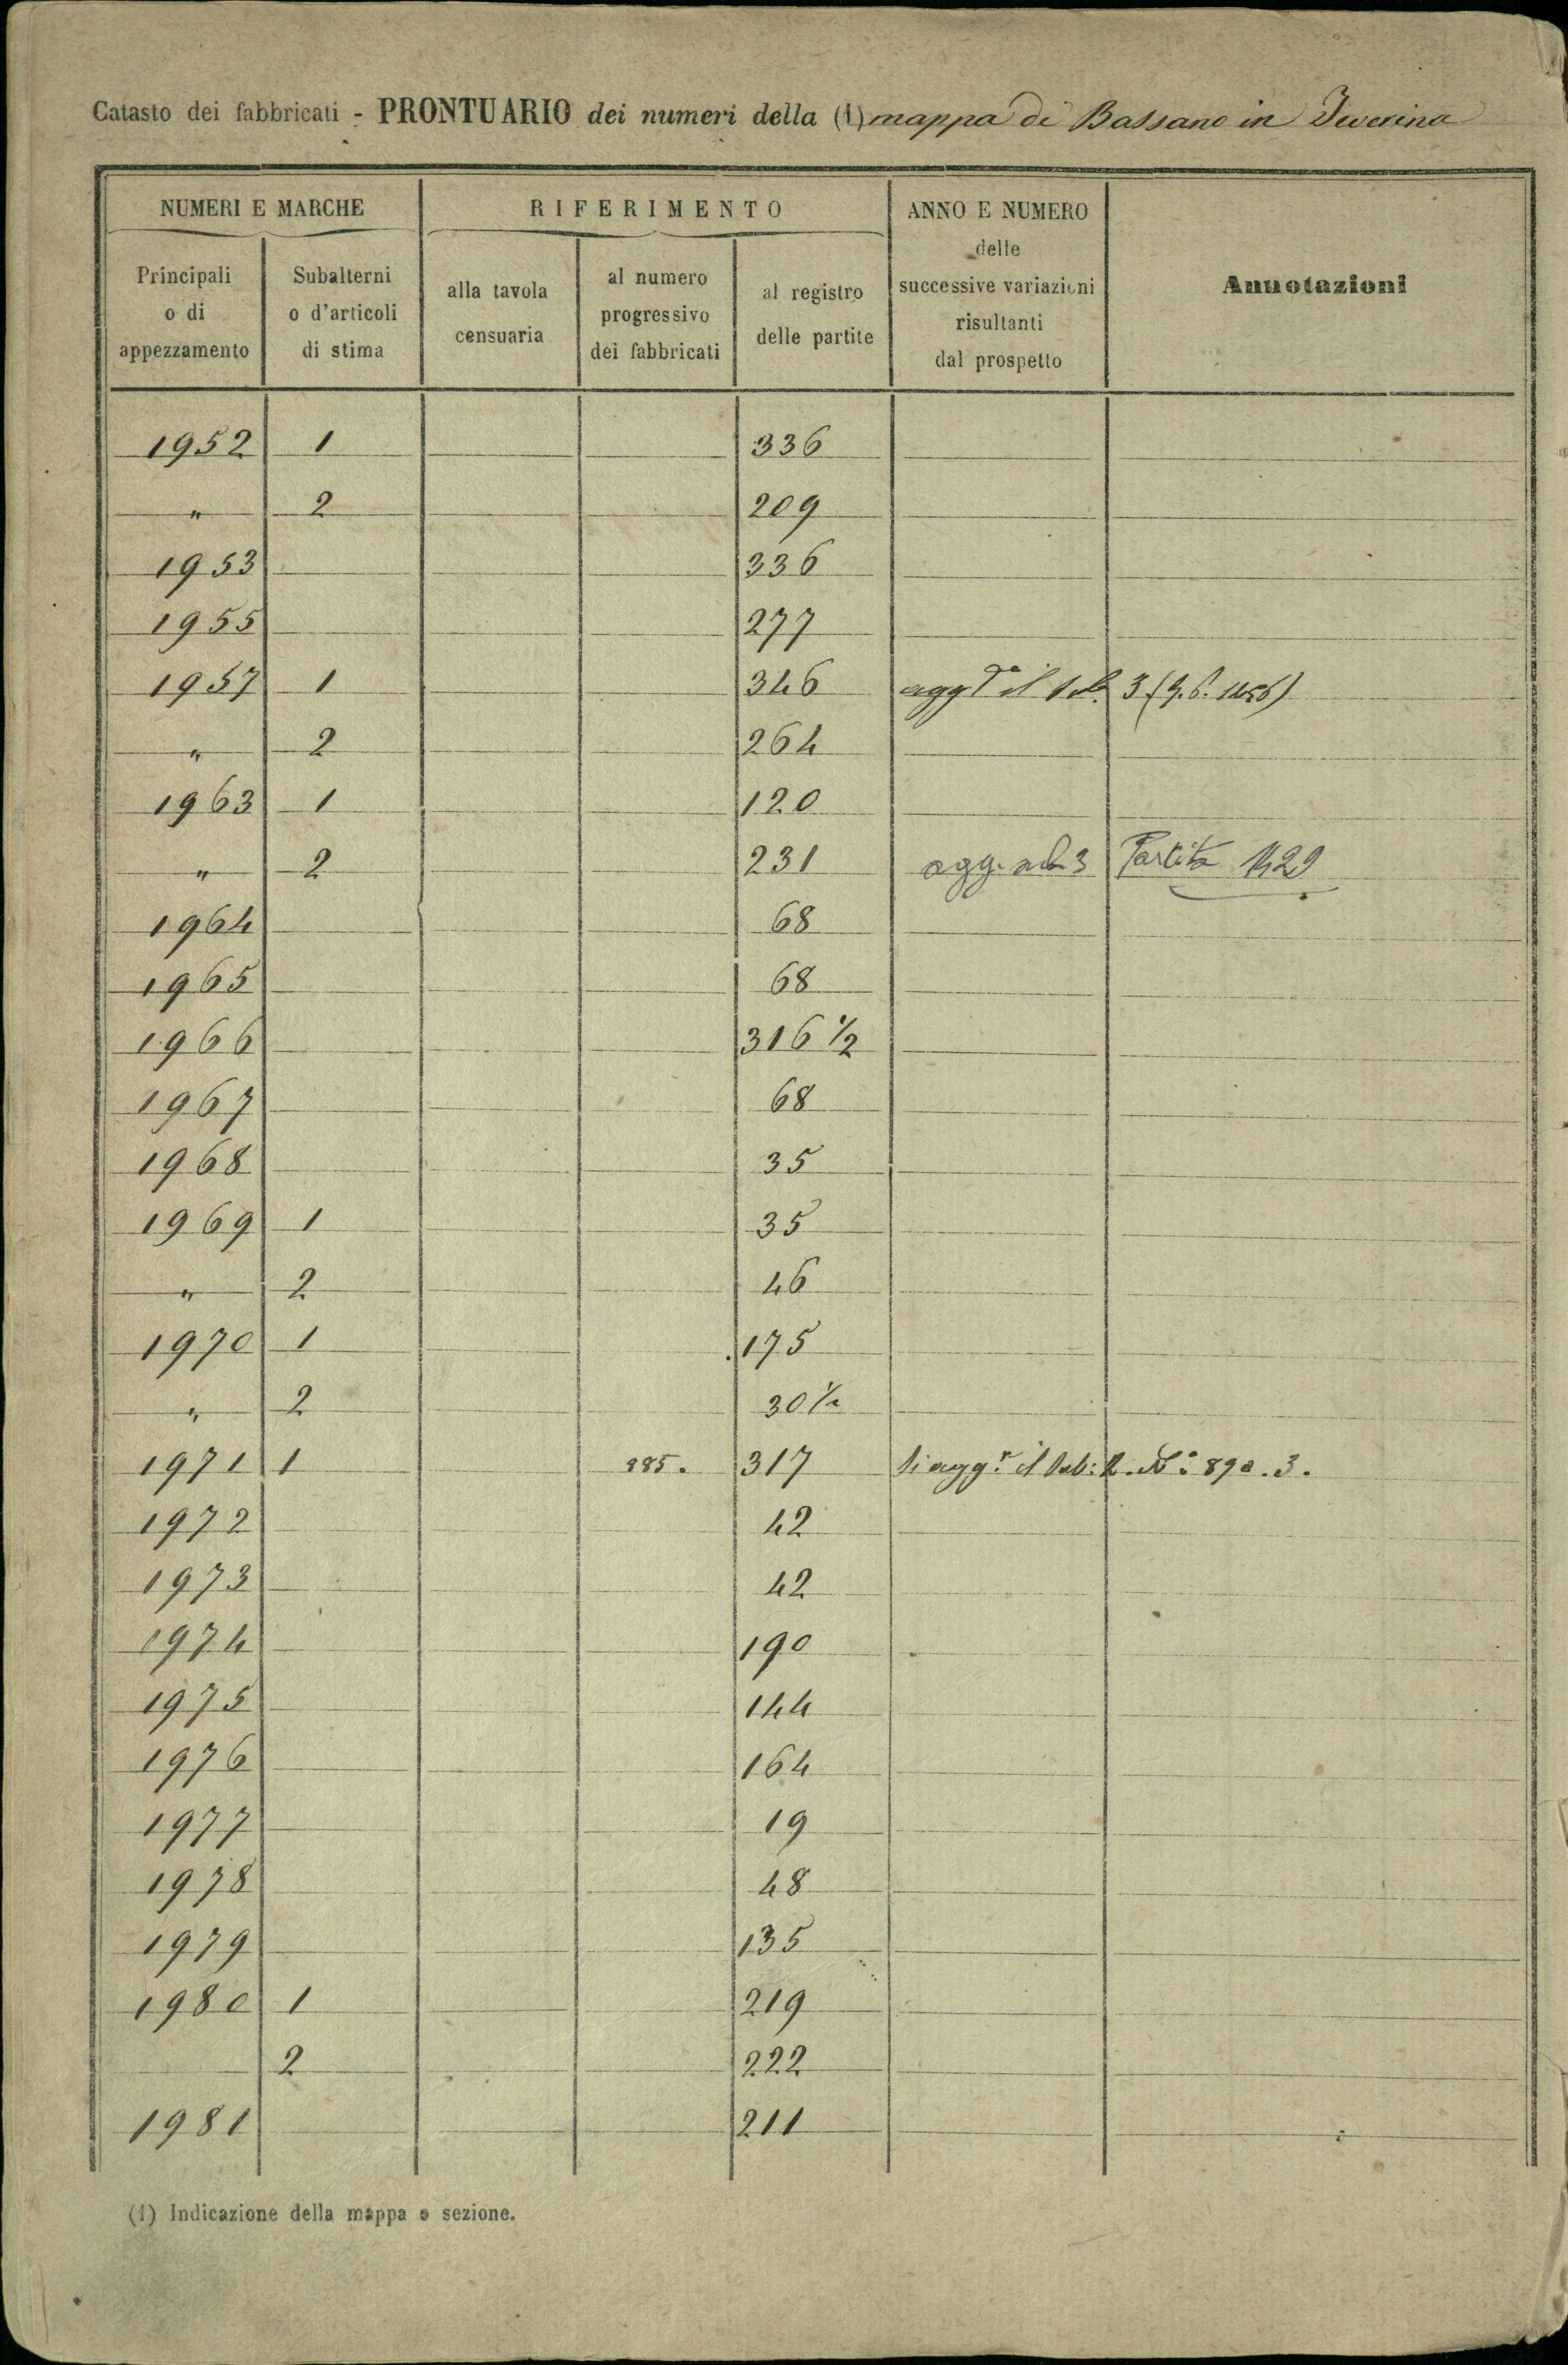 Catasto dei fabbricati - PRONTUARIO dei numeri della (1) mappa di Bassano in Teverina
NUMERI E MARCHE
RIFERIMENTO
ANNO E NUMERO
delle
successive variazioni
risultanti
dal prospetto
Annotazioni
Principali
o di
appezzamento
Subalterni
o d'articoli
di stima
alla tavola
censuaria
al numero
progressivo
dei fabbricati
al registro
delle partite
1952 1 336
" 2 209
1953 336
1955 277
1957 1 346 agg.to il sub. 3
" 2 264
1963 1 120
" 2 231 agg. sub 3 Partita
1964 68
1965 68
1966 316 1/2
1967 68
1968 35
1969 1 35
" 2 46
1970 1 175
" 2 30 1/2
1971 1 885. 317 Si agg.e il Sub: 2. N.o 890.3.
1972 42
1973 42
1974 190
1975 144
1976 164
1977 19
1978 48
1979 135
1980 1 219
2 222
1981 211
(1) Indicazione della mappa o sezione.